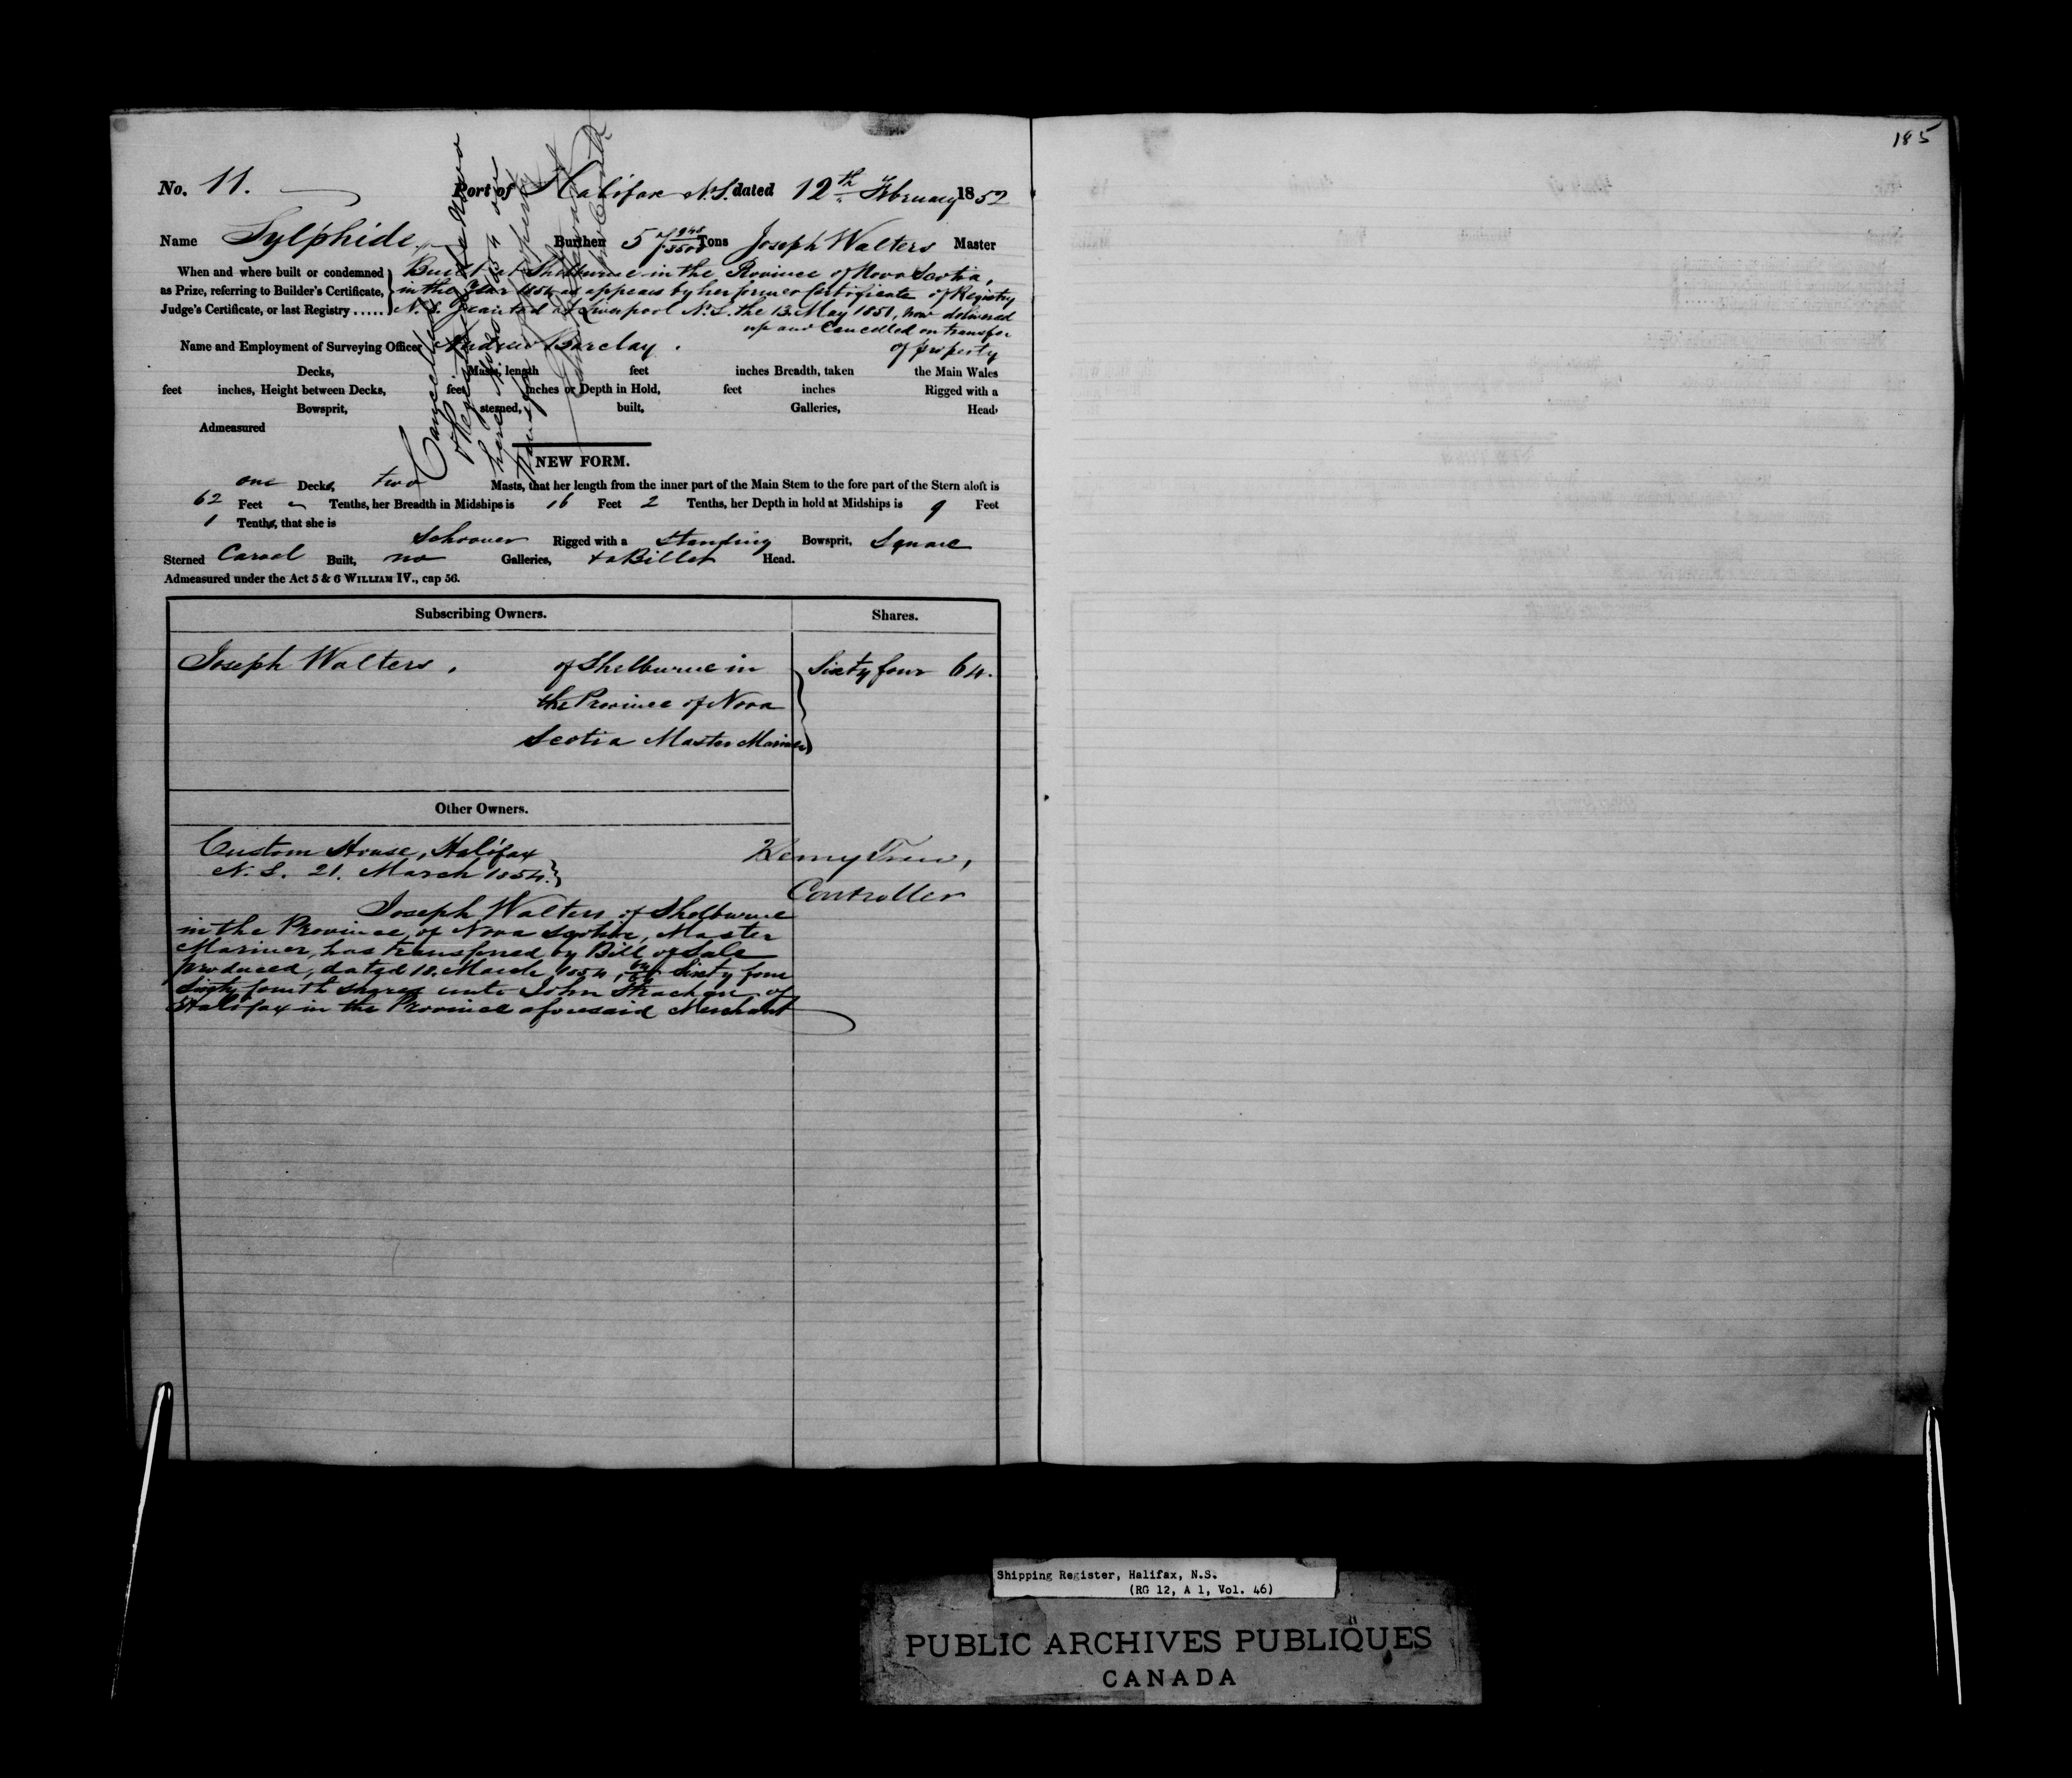 185
No. 11.
Port of Halifax N.S. dated 12th February 1852
Name Sylphide Burthen 57 1940/3500 Tons Joseph Walters Master
When and where built or condemned
as Prize, referring to Builder's Certificate,
Judge's Certificate, or last Registry .....
Built at Shelburne in the Province of Nova Scotia,
in the Year as appears by her former Certificate of Registry
granted at Liverpool N.S. the 13. May 1851, now delivered
up and Cancelled on transfer
of property
Name and Employment of Surveying Officer Andrew Barclay.
Decks, Masts, length feet inches Breadth, taken the Main Wales
feet inches, Height between Decks, feet inches or Depth in Hold, feet inches Rigged with a
Bowsprit, sterned, built, Galleries, Head,
Admeasured
Cancelled
NEW FORM.
one Decks, two Masts, that her length from the inner part of the Main Stem to the fore part of the Stern aloft is
62 Feet Tenths, her Breadth in Midships is 16 Feet 2 Tenths, her Depth in hold at Midships is 9 Feet
1 Tenths, that she is
Schooner Rigged with a standing Bowsprit, Square
Sterned Carvel Built, no Galleries, & a Billet Head.
Admeasured under the Act 5 & 6 WILLIAM IV., cap 56.
Subscribing Owners. Shares.
Joseph Walters, of Shelburne in Sixty four 64.
the Province of Nova
Scotia Master Mariner
Other Owners.
Custom House, Halifax Henry Trew,
N.S. 21. March 1854. Controller
Joseph Walters of Shelburne
in the Province of Nova Scotia, Master
Mariner, has transferred by Bill of Sale
produced, dated 18. March 1854, 64/64 Sixty four
Sixty fourth shares unto John Strachan of
Halifax in the Province aforesaid Merchant
Shipping Register, Halifax, N.S.
(RG 12, A 1, Vol. 46)
PUBLIC ARCHIVES PUBLIQUES
CANADA